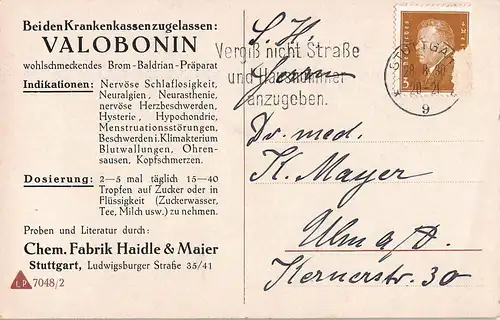 Bei den Krankenkassen zugelassen:
VALOBONIN
wohlschmeckendes Brom-Baldrian-Präparat
Indikationen: Nervöse Schlaflosigkeit,
Neuralgien, Neurasthenie,
nervöse Herzbeschwerden,
Hysterie, Hypochondrie,
Menstruationsstörungen,
Beschwerden i. Klimakterium
Blutwallungen, Ohren-
sausen, Kopfschmerzen.
Dosierung: 2—5 mal täglich 15—40
Tropfen auf Zucker oder in
Flüssigkeit (Zuckerwasser,
Tee, Milch usw.) zu nehmen.
Proben und Literatur durch:
Chem. Fabrik Haidle & Maier
Stuttgart, Ludwigsburger Straße 35/41
LP 7048/2
S. H.
Vergiß nicht Straße
und Hausnummer
anzugeben.
Herrn
STUTTGART
9
Dr. med.
K. Mayer
Ulm a/D.
Kernerstr. 30